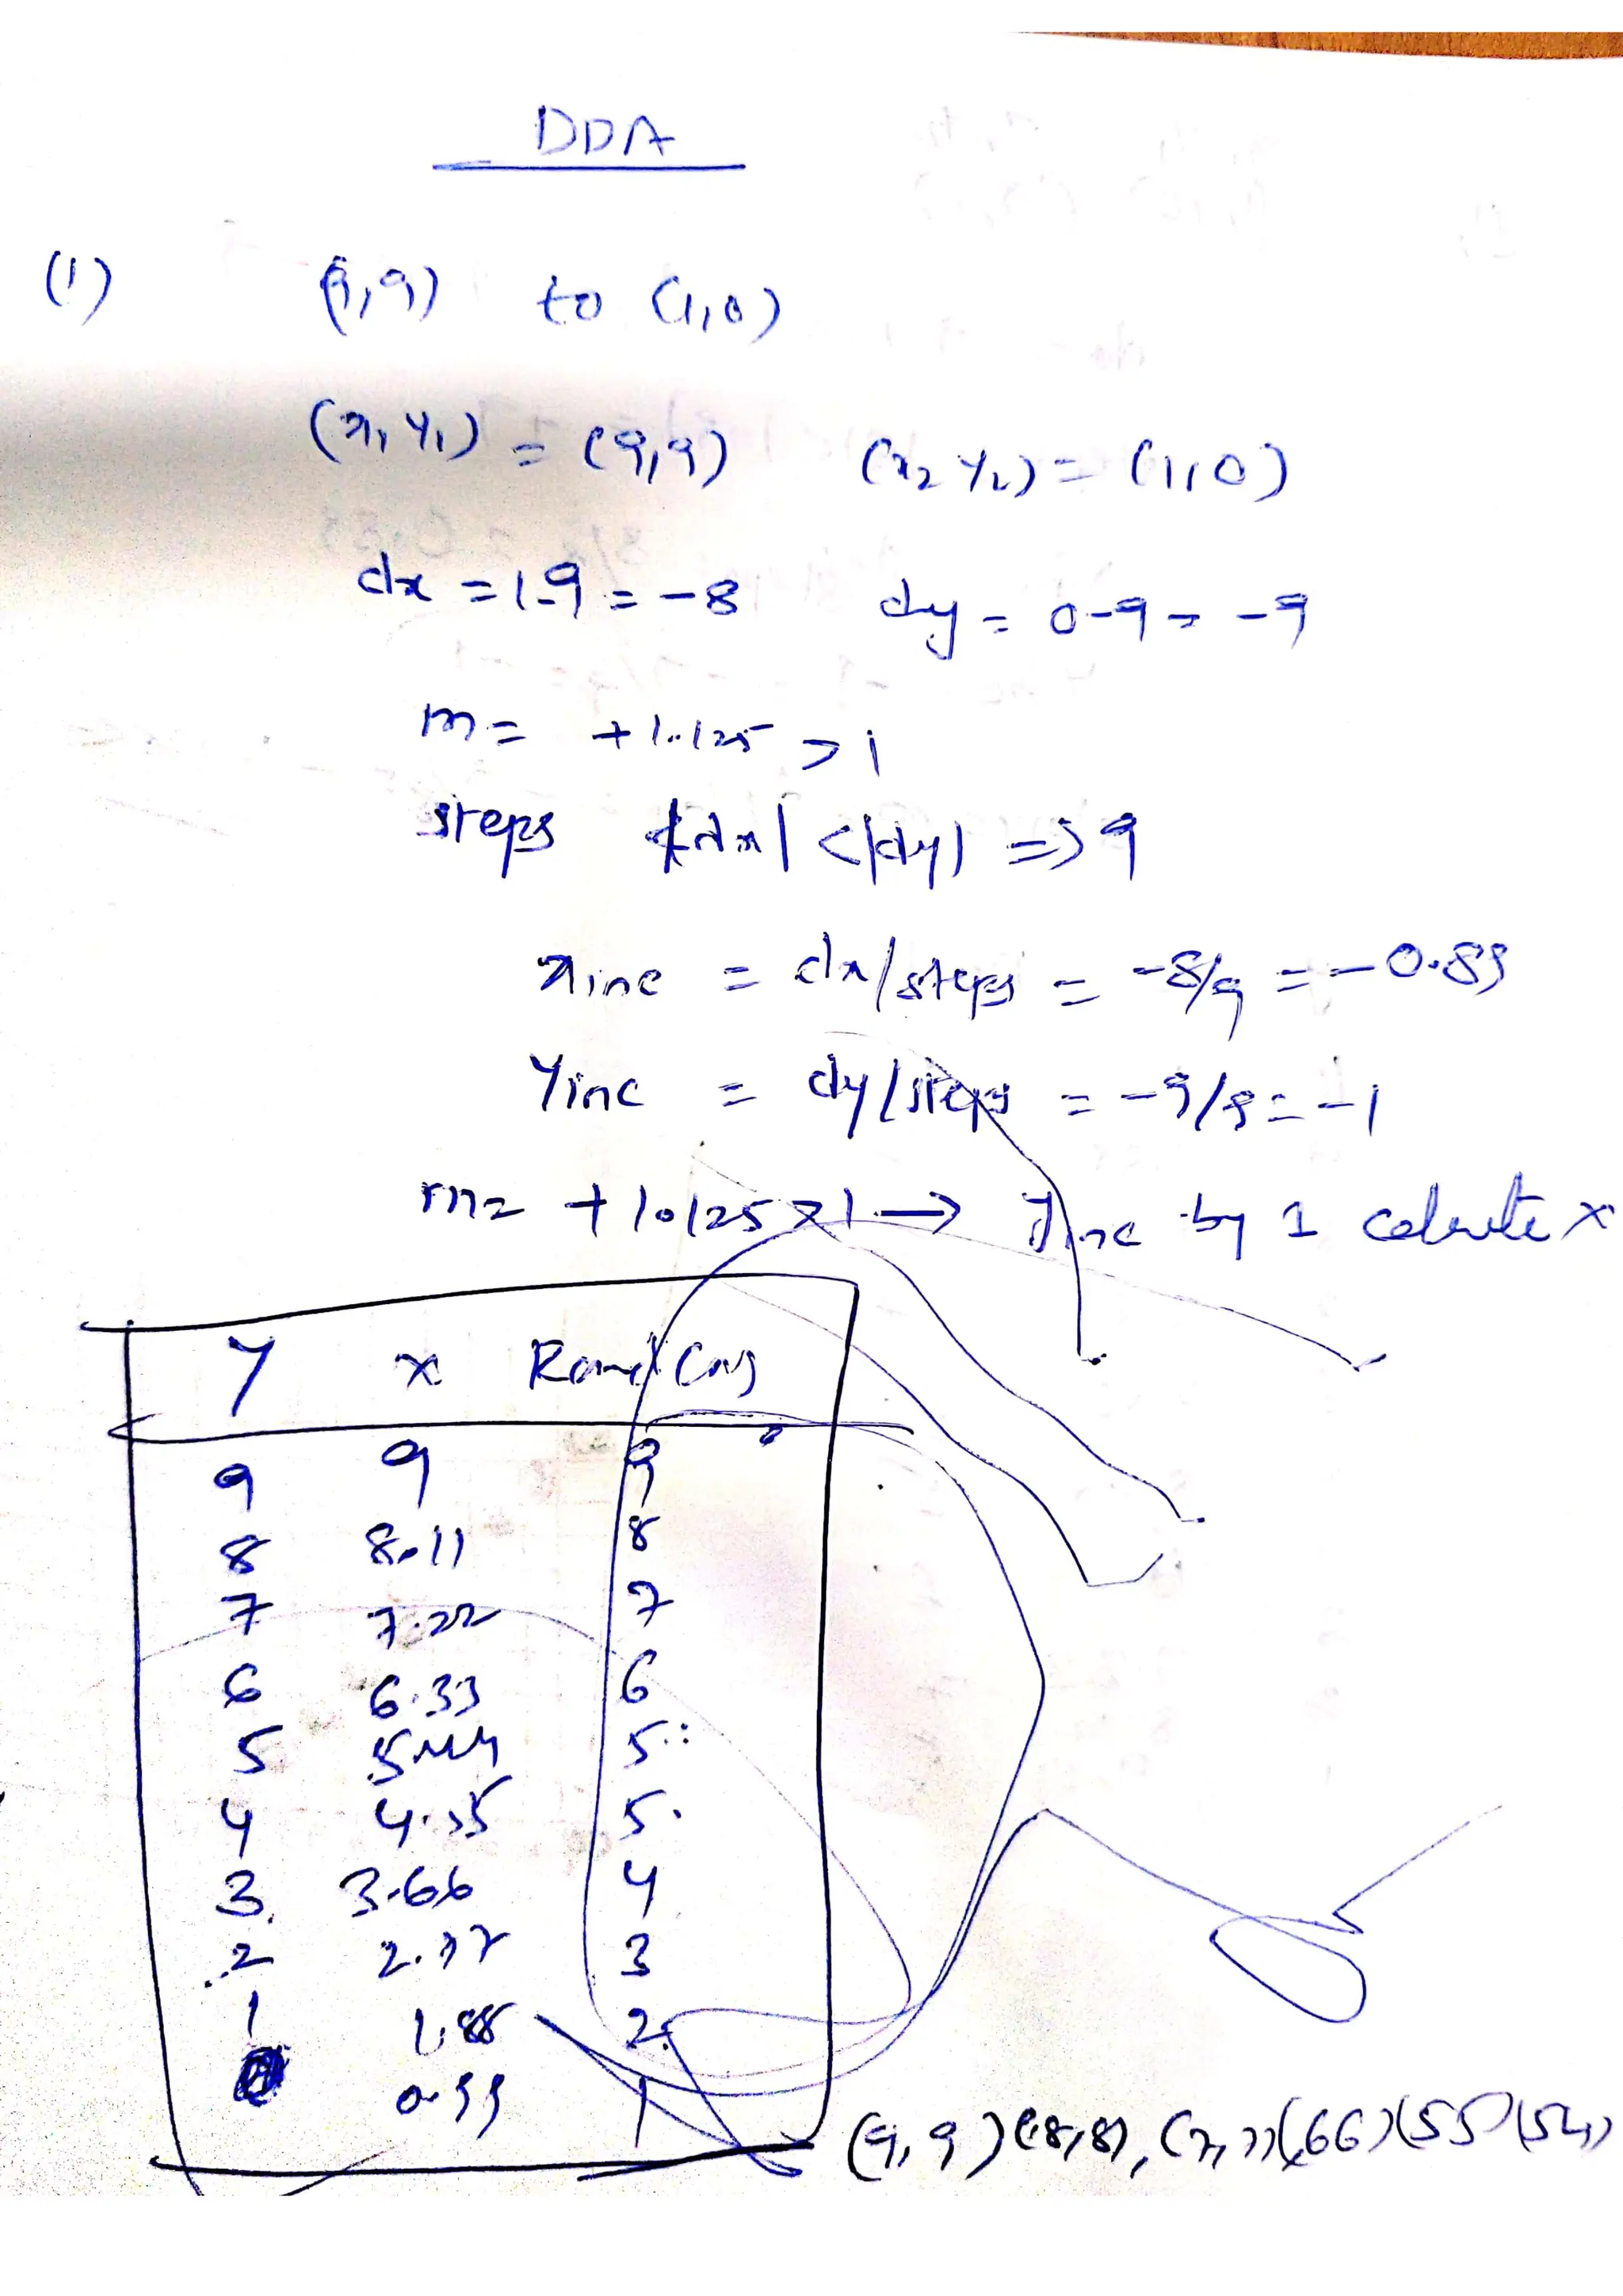 DDA
(1) (9,9) to (1,0)
(x1 y1) = (9,9) (x2 y2) = (1,0)
dx = 1-9 = -8 dy = 0-9 = -9
m = +1.125 > 1
steps |dx| < |dy| => 9
xinc = dx/steps = -8/9 = -0.89
Yinc = dy/steps = -9/9 = -1
m = +1.125 > 1 → yinc by 1 x
Y x
9 9 9
8 8.11 8
7 7.22 7
6 6.33 6
5 5.44 5
4 4.55 5
3 3.66 4
2 2.77 3
1 1.88 2
0 0.99 1
(9,9) (8,8), (7,7) (66) (55) (54)